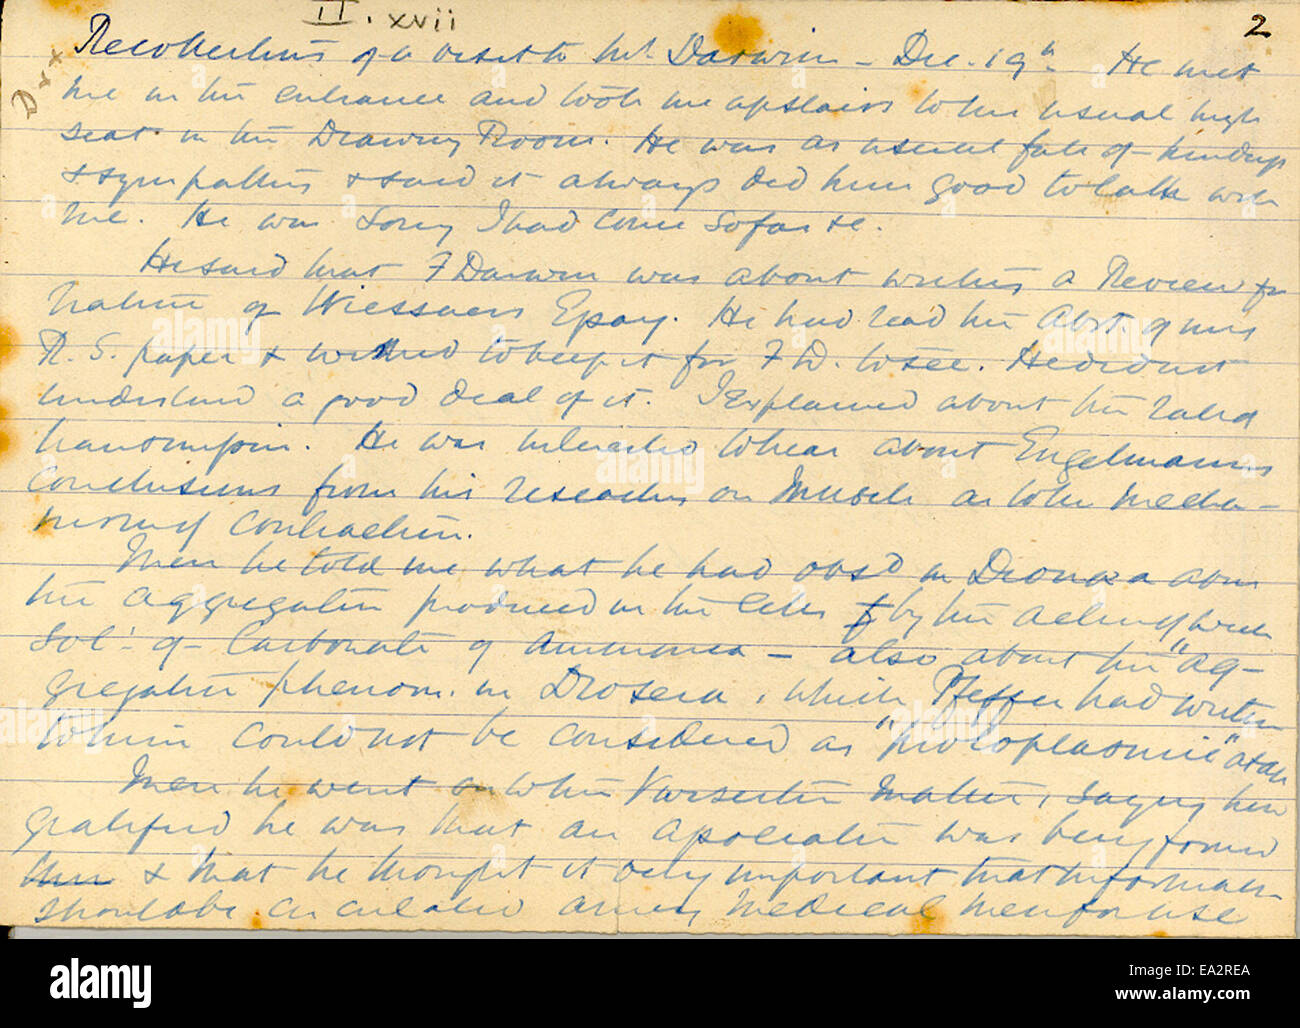 II. xvii
2
Recollections of a visit to Mr Darwin – Dec. 19th He met
me in the entrance and took me upstairs to his usual high
seat in the Drawing Room. He was as usual full of kindness
& sympathies & said it always did him good to talk with
me. He was sorry I had come so far &c.
He said that F Darwin was about writing a Review for
Nature of Wiessners Essay. He had read the Abst. of my
R. S. paper & wished to keep it for F D. to see. He did not
understand a good deal of it. I explained about the
He was interested to hear about Engelmanns
conclusions from his researches on Muscle as to the mecha-
nism of contraction.
Then he told me what he had obsd in Dionaea about
the aggregation produced in the cells by the action of weak
Sol: of Carbonate of Ammonia – also about the "ag-
gregation phenom. in Drosera, which Pfeffer had written
to him could not be considered as "protoplasmic" at all
Then he went on to the Vivisection Matter, saying how
gratified he was that an Association was being formed
& that he thought it very important that information
should be circulated among medical men for use
alamy
Image ID: EA2REA
www.alamy.com